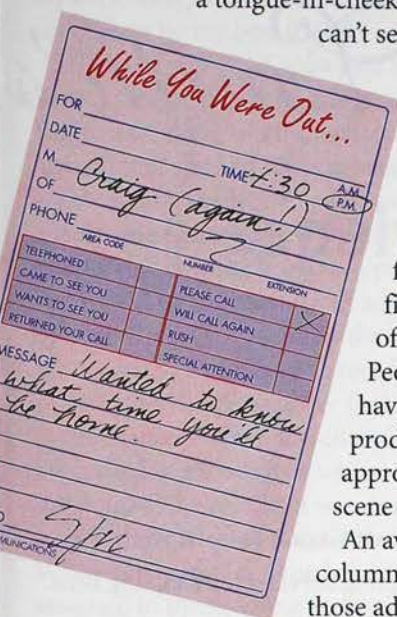 a tongue-in-cheek
can't se
While You Were Out...
FOR
DATE
TIME 7:30 A.M. P.M.
M Craig (again!)
OF
PHONE
AREA CODE NUMBER EXTENSION
TELEPHONED PLEASE CALL X
CAME TO SEE YOU WILL CALL AGAIN
WANTS TO SEE YOU RUSH
RETURNED YOUR CALL SPECIAL ATTENTION
MESSAGE Wanted to know
what time you'll
be home.
MUNICATIONS
f
fi
of
Peo
hav
prod
appro
scene
An av
column
those ad